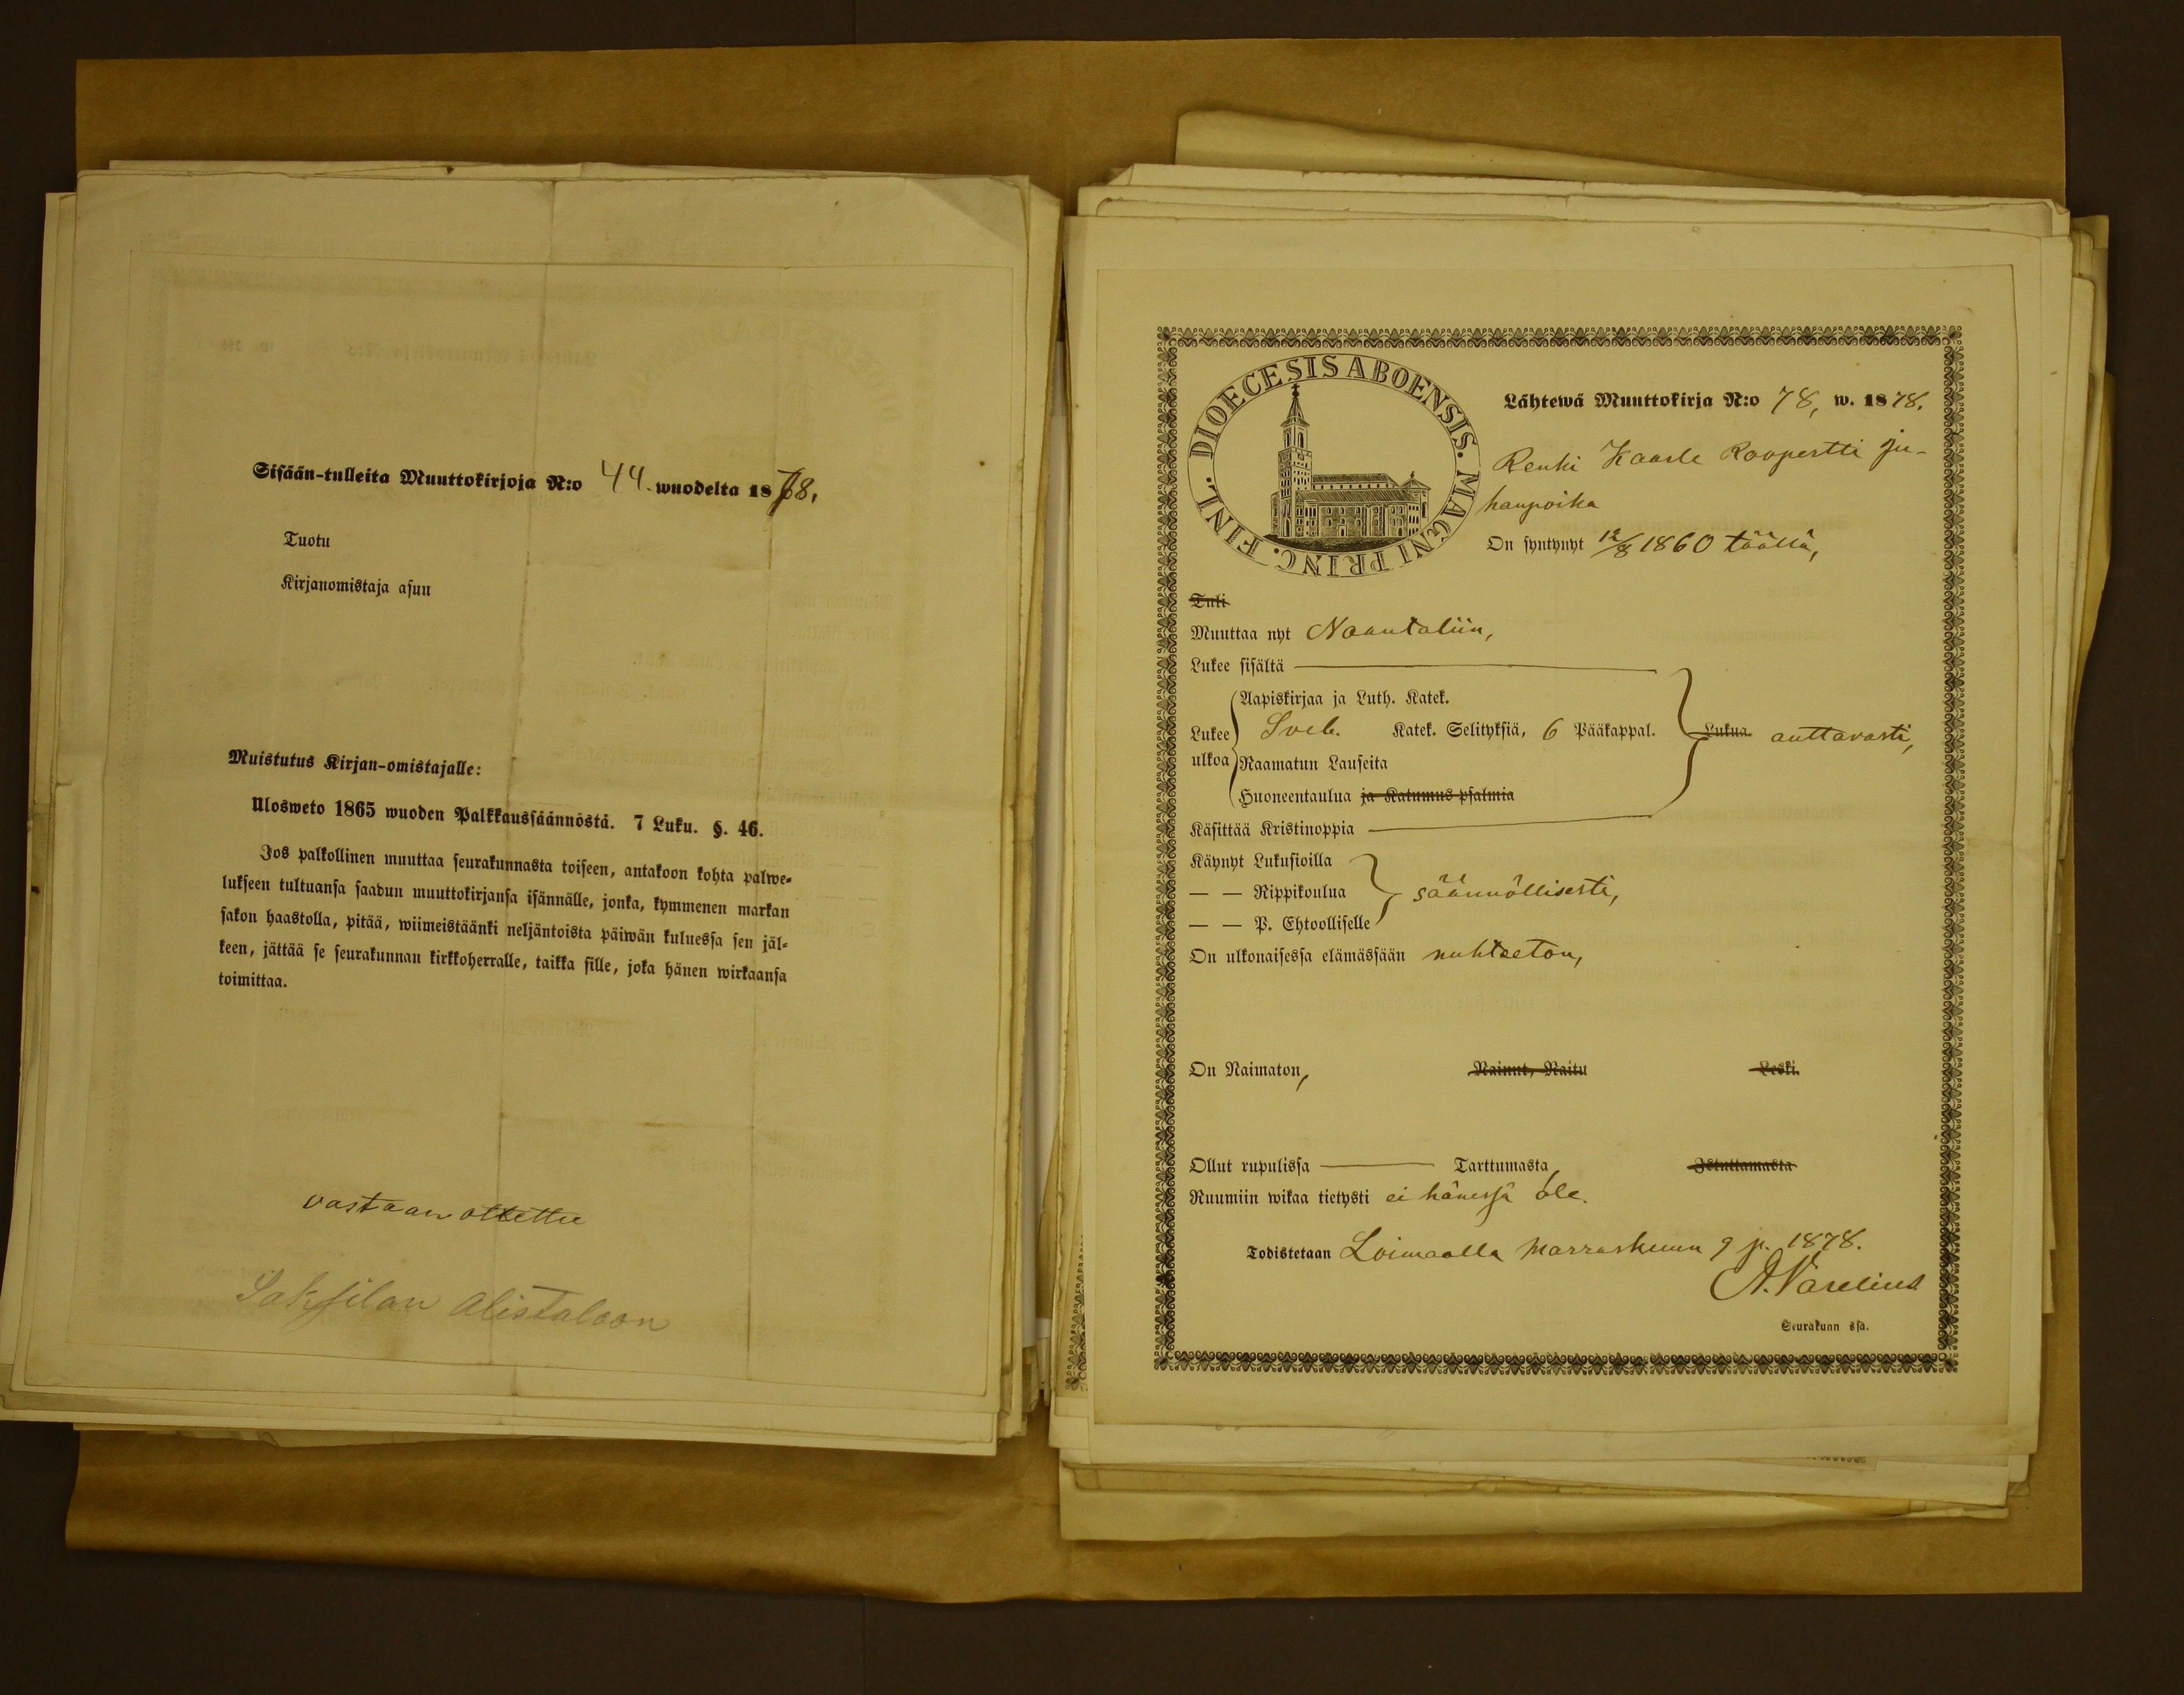 Sisään-tulleita Muuttokirjoja N:o 44. wuodelta 1878.
Tuotu
Kirjanomistaja asuu
Muistutus Kirjan-omistajalle:
Ulosweto 1865 wuoden Palkkaussäännöstä. 7 Luku. §. 46.
Jos palkollinen muuttaa seurakunnasta toiseen, antakoon kohta palwe-
lukseen tultuansa saadun muuttokirjansa isännälle, jonka, kymmenen markan
sakon haastolla, pitää, wiimeistäänki neljäntoista päiwän kuluessa sen jäl-
keen, jättää se seurakunnan kirkkoherralle, taikka sille, joka hänen wirkaansa
toimittaa.
vastaan otettu
Saksilan Alistaloon
DIOECESIS ABOENSIS. MAGNI PRINC. FINL.
Lähtewä Muuttokirja N:o 78, w. 1878.
Renki Kaarle Roopertti Ju-
hanpoika
On syntynyt 12/8 1860 täällä,
Tuli
Muuttaa nyt Naantaliin,
Lukee sisältä
Aapiskirjaa ja Luth. Katek.
Lukee ulkoa Sveb. Katek. Selityksiä, 6 Pääkappal. Lukua auttavasti,
Raamatun Lauseita
Huoneentaulua ja Katumus psalmia
Käsittää Kristinoppia
Käynyt Lukusioilla
— — Rippikoulua säännöllisesti,
— — P. Ehtoolliselle
On ulkonaisessa elämässään nuhteeton,
On Naimaton, Nainut, Naitu Leski.
Ollut rupulissa Tarttumasta Istuttamasta
Ruumiin wikaa tietysti ei hänessä ole.
Todistetaan Loimaalla Marraskuun 9 p. 1878.
A. Varelius
Seurakunn ssa.